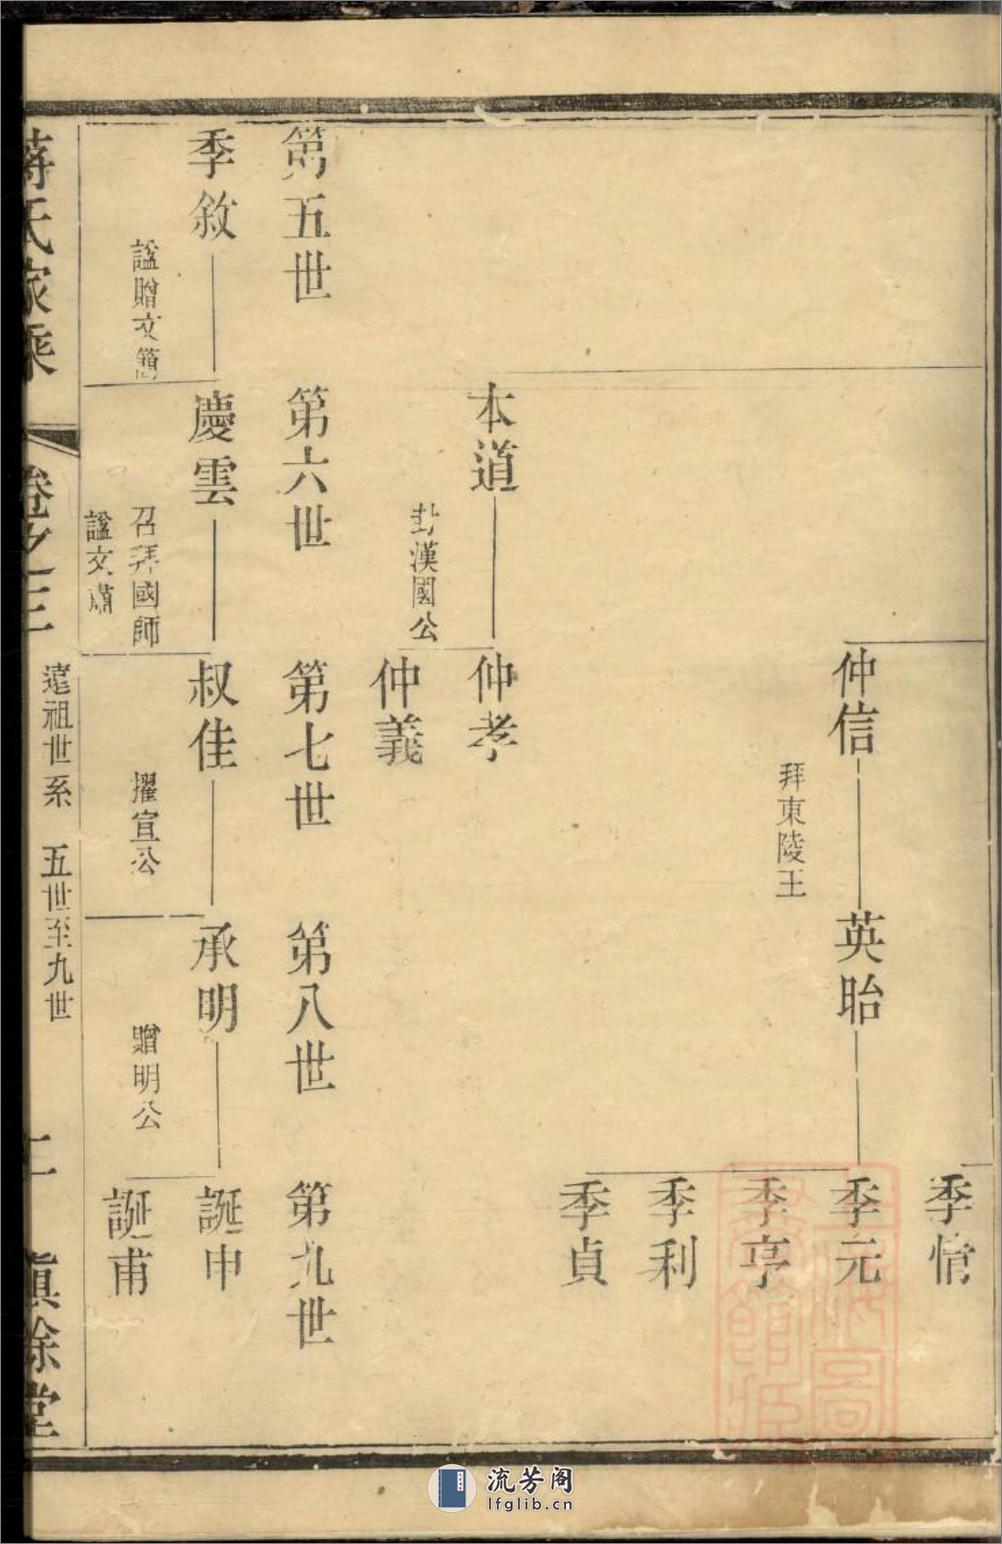 季愭
仲信
拜東陵王
英眙
季元
季亨
季利
季貞
本道
封漢國公
仲孝
仲義
第五世
第六世
第七世
第八世
第九世
季敘
諡贈文簡
慶雲
召拜國師
諡文肅
叔佳
擢宣公
承明
贈明公
誕申
誕甫
蔣氏家乘
卷之三
遠祖世系 五世至九世
二
慎餘堂
流芳阁
lfglib.cn